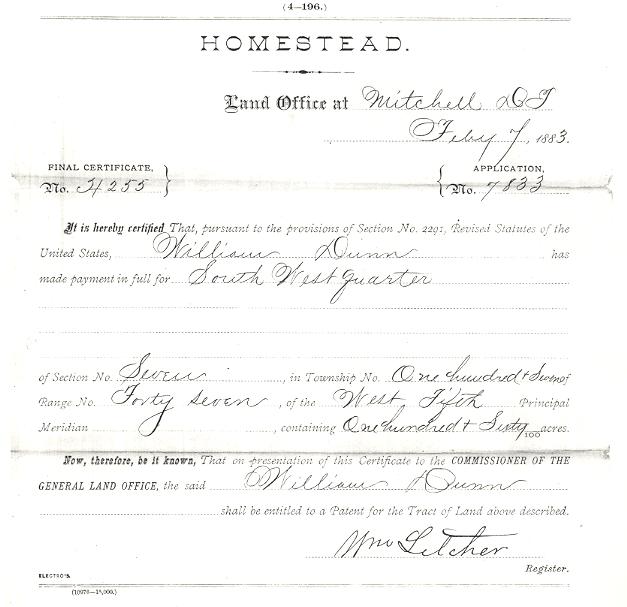 (4—196.)
HOMESTEAD.
Land Office at Mitchell DT
Feby 7, 1883.
FINAL CERTIFICATE, } { APPLICATION,
No. 4255 No. 7833
It is hereby certified That, pursuant to the provisions of Section No. 2291, Revised Statutes of the
United States, William Dunn has
made payment in full for South West quarter
of Section No. Seven, in Township No. One hundred & Seven of
Range No. Forty seven, of the West Fifth Principal
Meridian, containing One hundred & Sixty /100 acres.
Now, therefore, be it known, That on presentation of this Certificate to the COMMISSIONER OF THE
GENERAL LAND OFFICE, the said William Dunn
shall be entitled to a Patent for the Tract of Land above described.
Wm Letcher
Register.
ELECTRO'S.
(10976—15,000.)